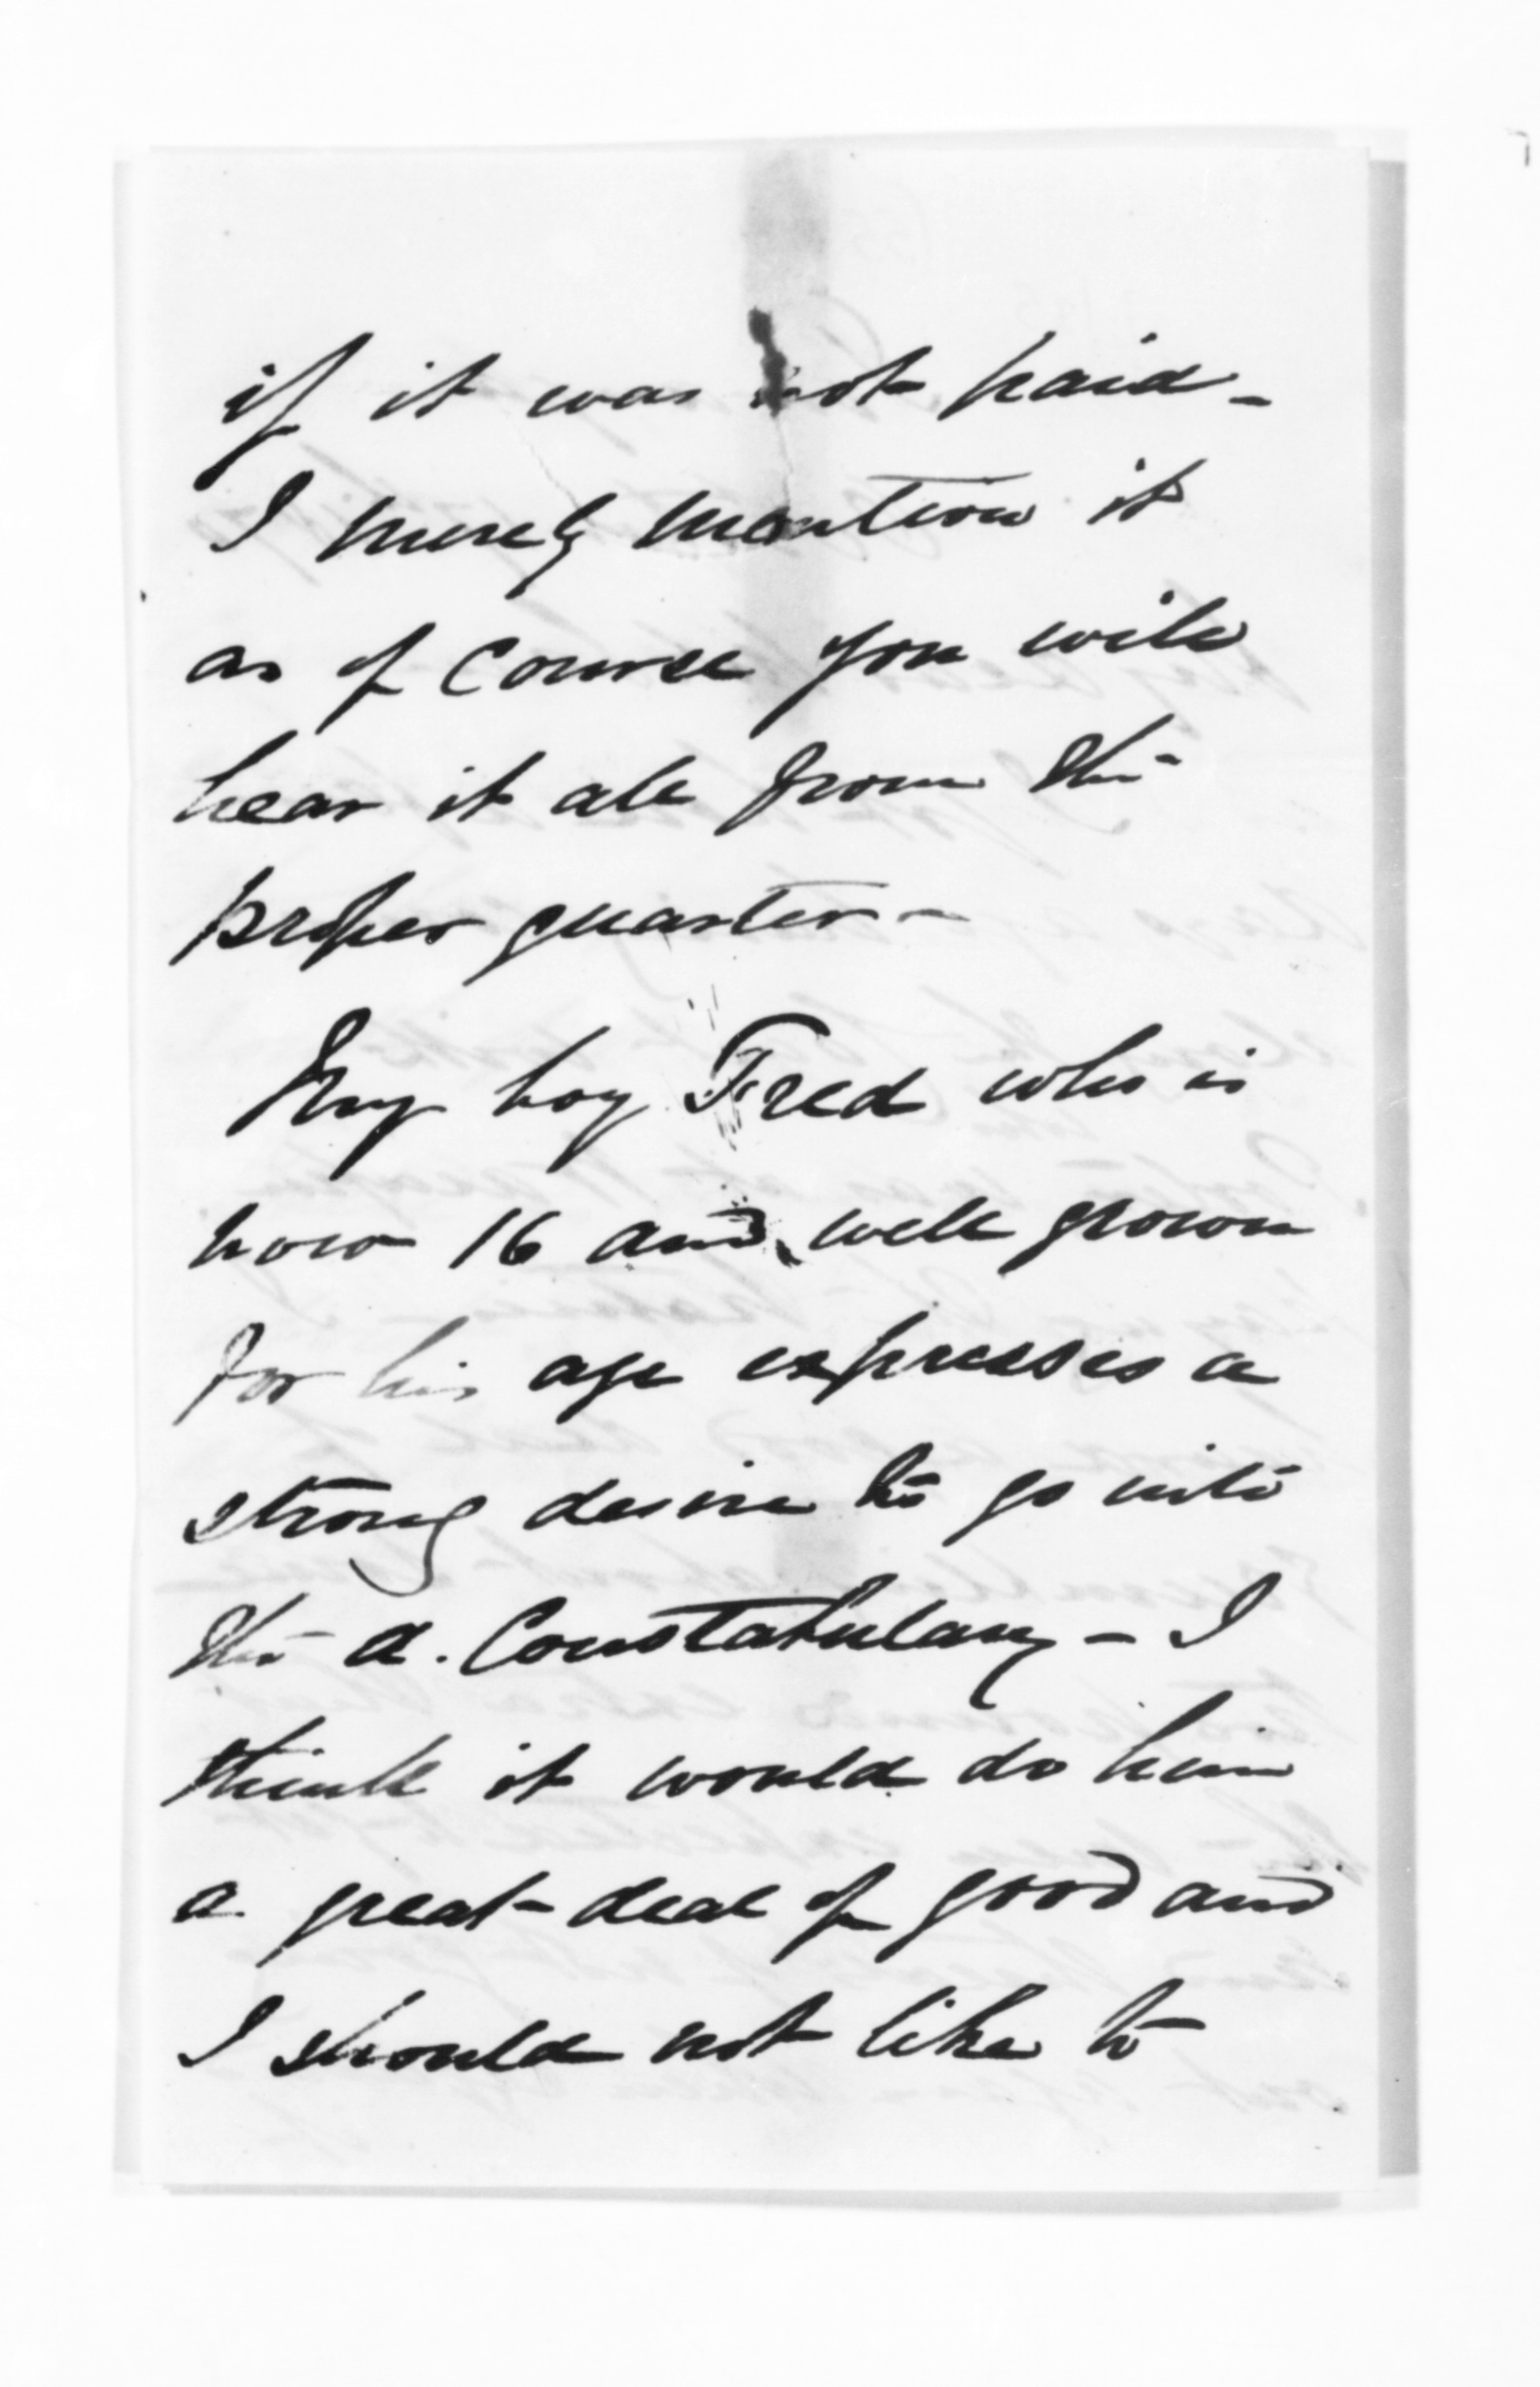 if it was not paid -
I merely mention it
as of course you will
hear it all from the
proper quarter -
My boy Fred who is
now 16 and well grown
for his age expresses a
strong desire to go into
the A. Constabulary - I
think it would do him
a great deal of good and
I should not like to